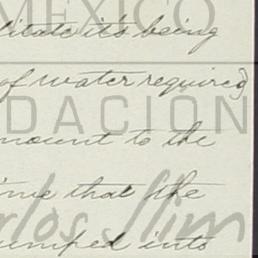 MEXICO
litate it's being
of water required
DACION
mount to the
ime that the
arlos Slim
umped into